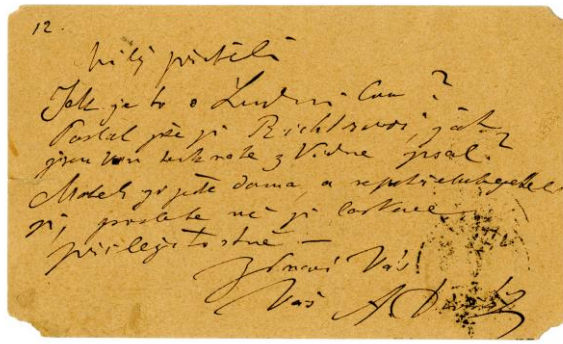 12.
Milý příteli
Jak je to s Ludmilou?
Poslal jste ji Richtrovi, jak
jsem Vám z Vídně psal?
Máteli ji ještě doma, a nepotřebujeteli
ji, pošlete mě ji laskavě
příležitostně —
Zdraví Vás
Váš A. Dvořák